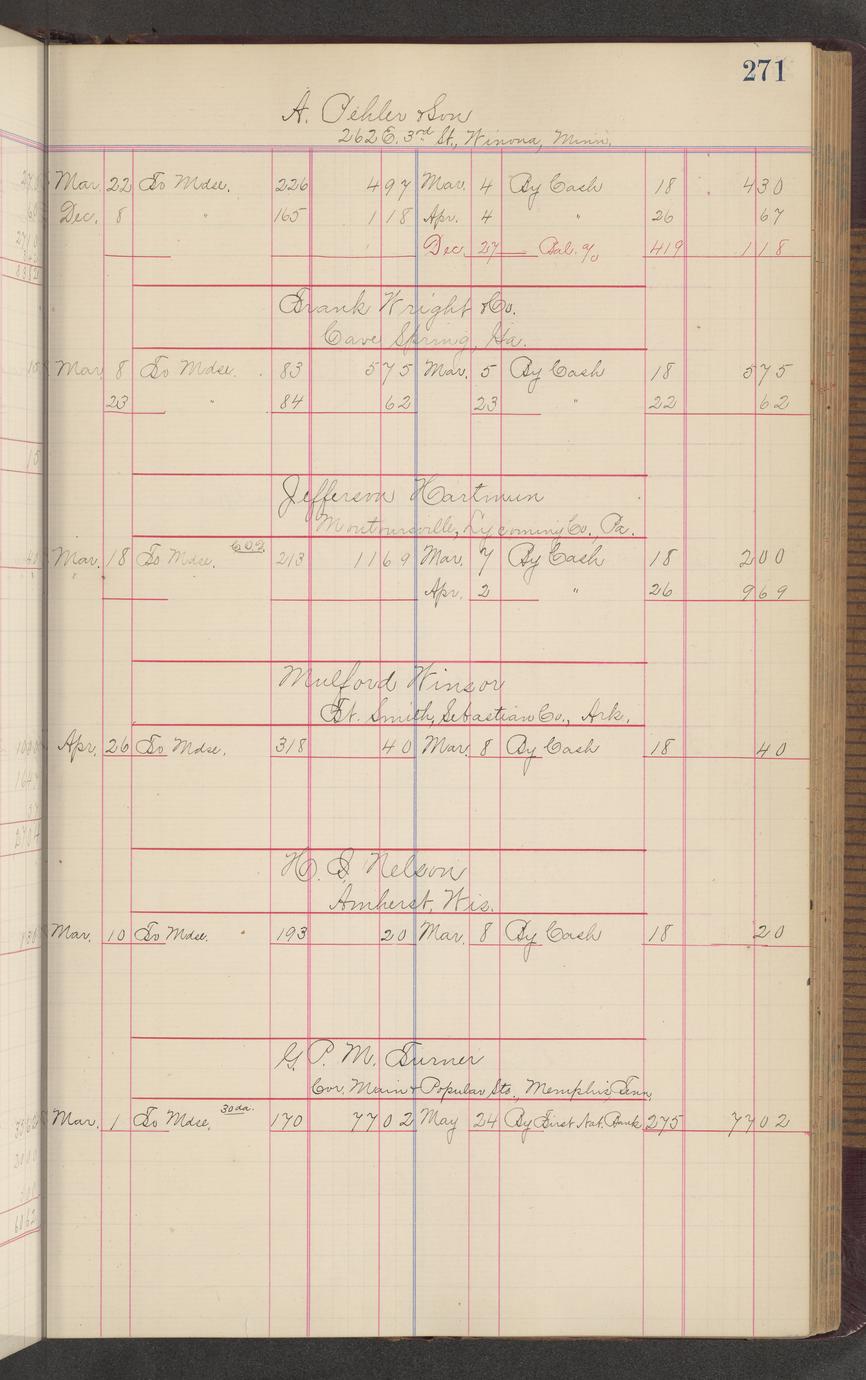 271
A. Pehler & Son
262 E. 3rd St., Winona, Minn.
Mar. 22 To Mdse. 226 4 97 Mar. 4 By Cash 18 4 30
Dec. 8 " 165 1 18 Apr. 4 " 26 67
Dec. 27 Bal. % 419 1 18
Frank Wright & Co.
Cave Spring, Ga.
Mar. 8 To Mdse. 83 5 75 Mar. 5 By Cash 18 5 75
23 " 84 62 23 " 22 62
Jefferson Hartmun
Montoursville, Lycoming Co., Pa.
Mar. 18 To Mdse. C.O.D. 213 11 69 Mar. 7 By Cash 18 2 00
Apr. 2 " 26 9 69
Mulford Winsor
Ft. Smith, Sebastian Co., Ark.
Apr. 26 To Mdse. 318 40 Mar. 8 By Cash 18 40
H. I. Nelson
Amherst, Wis.
Mar. 10 To Mdse. 193 20 Mar. 8 By Cash 18 20
G. P. M. Turner
Cor. Main & Popular Sts., Memphis, Tenn.
Mar. 1 To Mdse. 30 da. 170 77 02 May 24 By First Nat. Bank 275 77 02